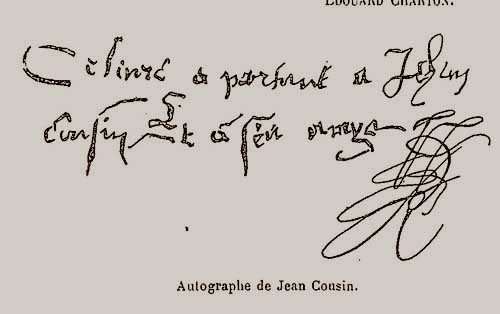 ÉDOUARD CHARTON.
Ce liure a partient a Jehan
Cousin Et a ses amys
Autographe de Jean Cousin.